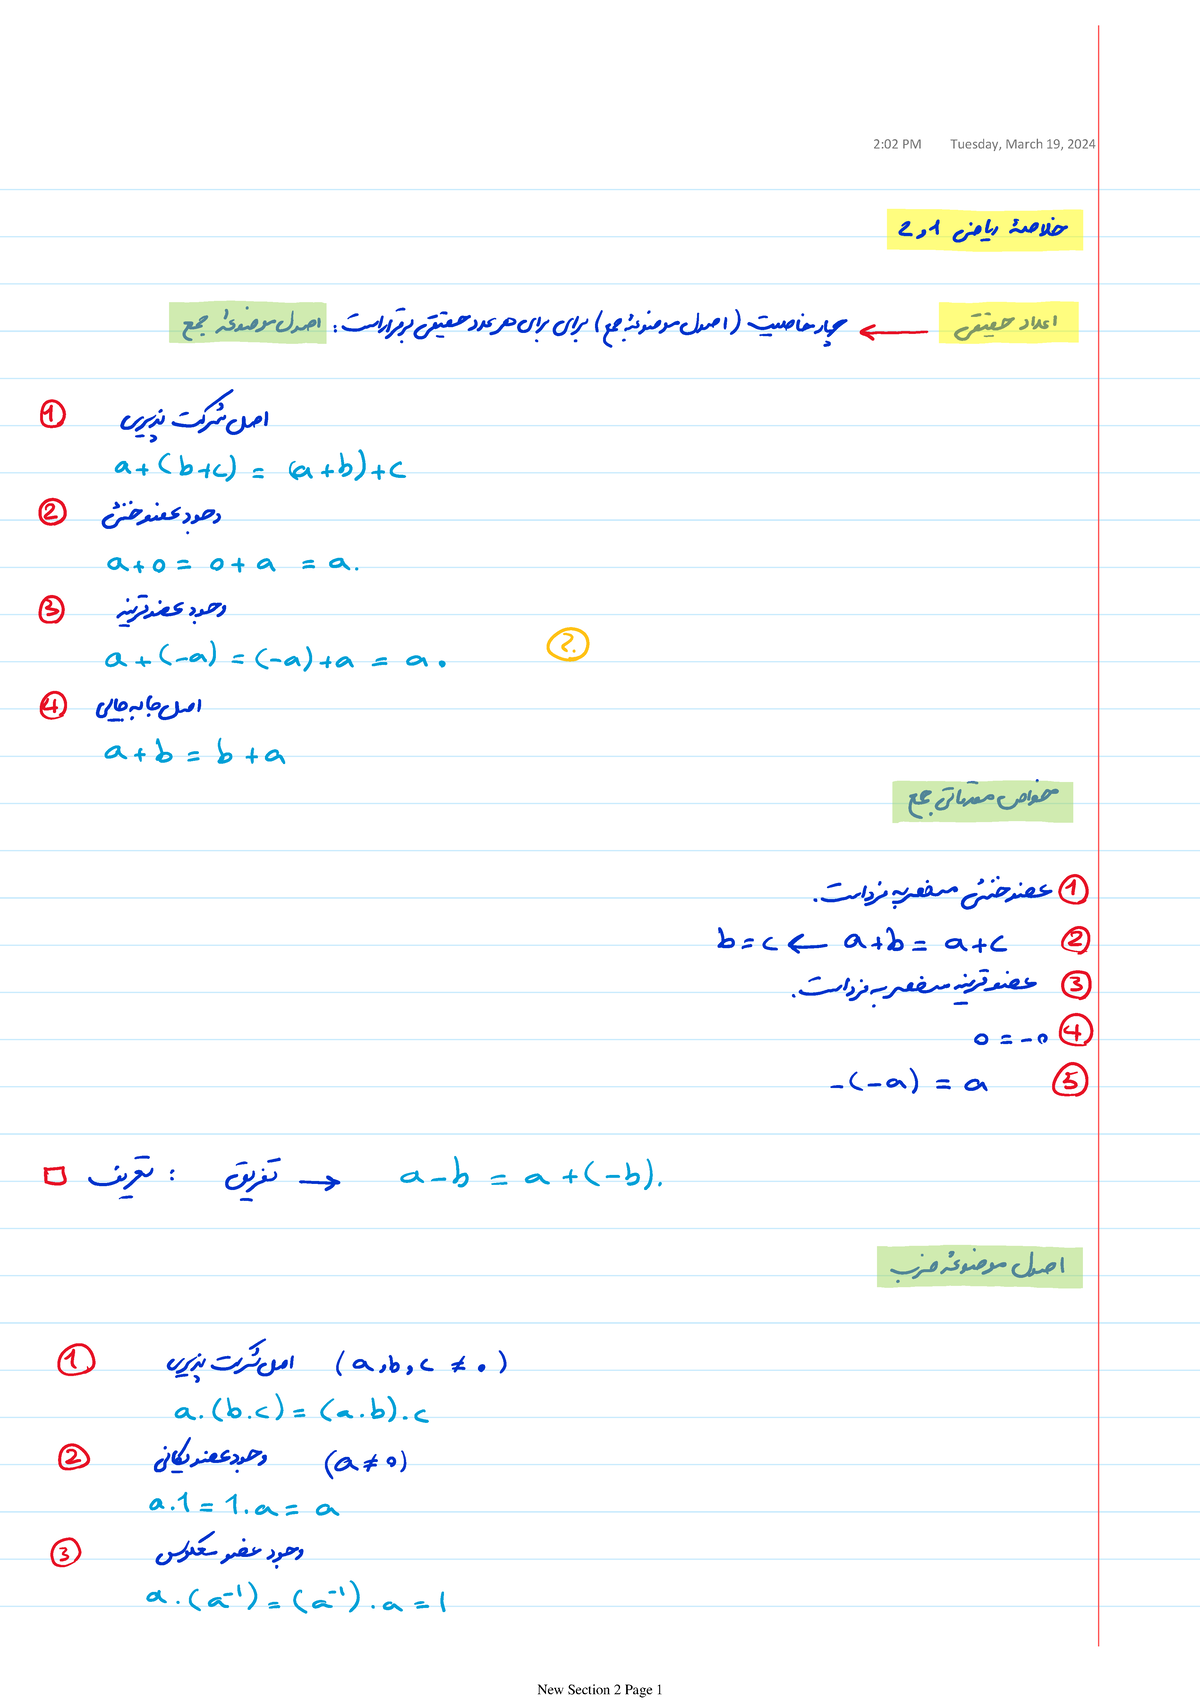 2:02 PM Tuesday, March 19, 2024
خلاصهٔ ریاضی 1 و 2
اعداد حقیقی ← چهار خاصیت (اصول موضوعهٔ جمع) برای برای هر عدد حقیقی برقرار است: اصول موضوعهٔ جمع
1 اصل شرکت پذیری
a+(b+c) = (a+b)+c
2 وجود عضو خنثی
a+0 = 0+a = a.
3 وجود عضو قرینه
a+(-a) = (-a)+a = a. ?
4 اصل جابه‌جایی
a+b = b+a
خواص مقدماتی جمع
1 عضو خنثی منحصر به فرد است.
2 a+b = a+c ← b=c
3 عضو قرینه منحصر به فرد است.
4 0 = -0
5 -(-a) = a
تعریف : تفریق → a-b = a+(-b).
اصول موضوعهٔ ضرب
1 اصل شرکت پذیری (a,b,c ≠ 0)
a.(b.c) = (a.b).c
2 وجود عضو یکانی (a≠0)
a.1 = 1.a = a
3 وجود عضو معکوس
a.(a⁻¹) = (a⁻¹).a = 1
New Section 2 Page 1